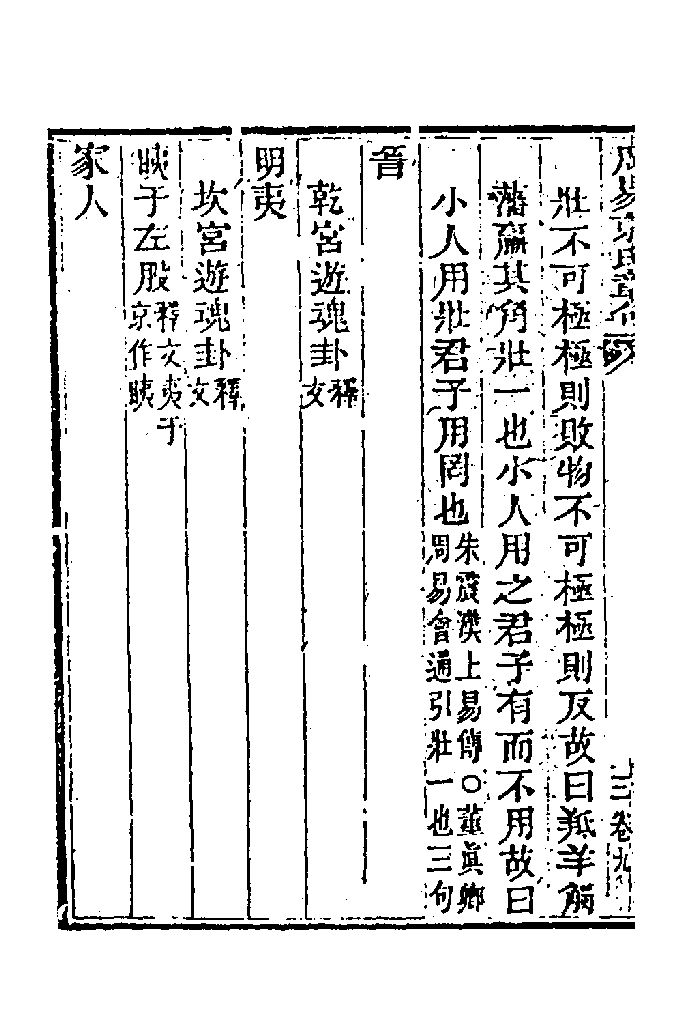 周易京氏章句
十三 卷九
壯不可極極則敗物不可極極則反故曰羝羊觸
藩羸其角壯一也小人用之君子有而不用故曰
小人用壯君子用罔也朱震漢上易傳〇董眞卿
周易會通引壯一也三句
晉
乾宮遊魂卦釋文
明夷
坎宮遊魂卦釋文
眱于左股釋文夷于
京作眱
家人